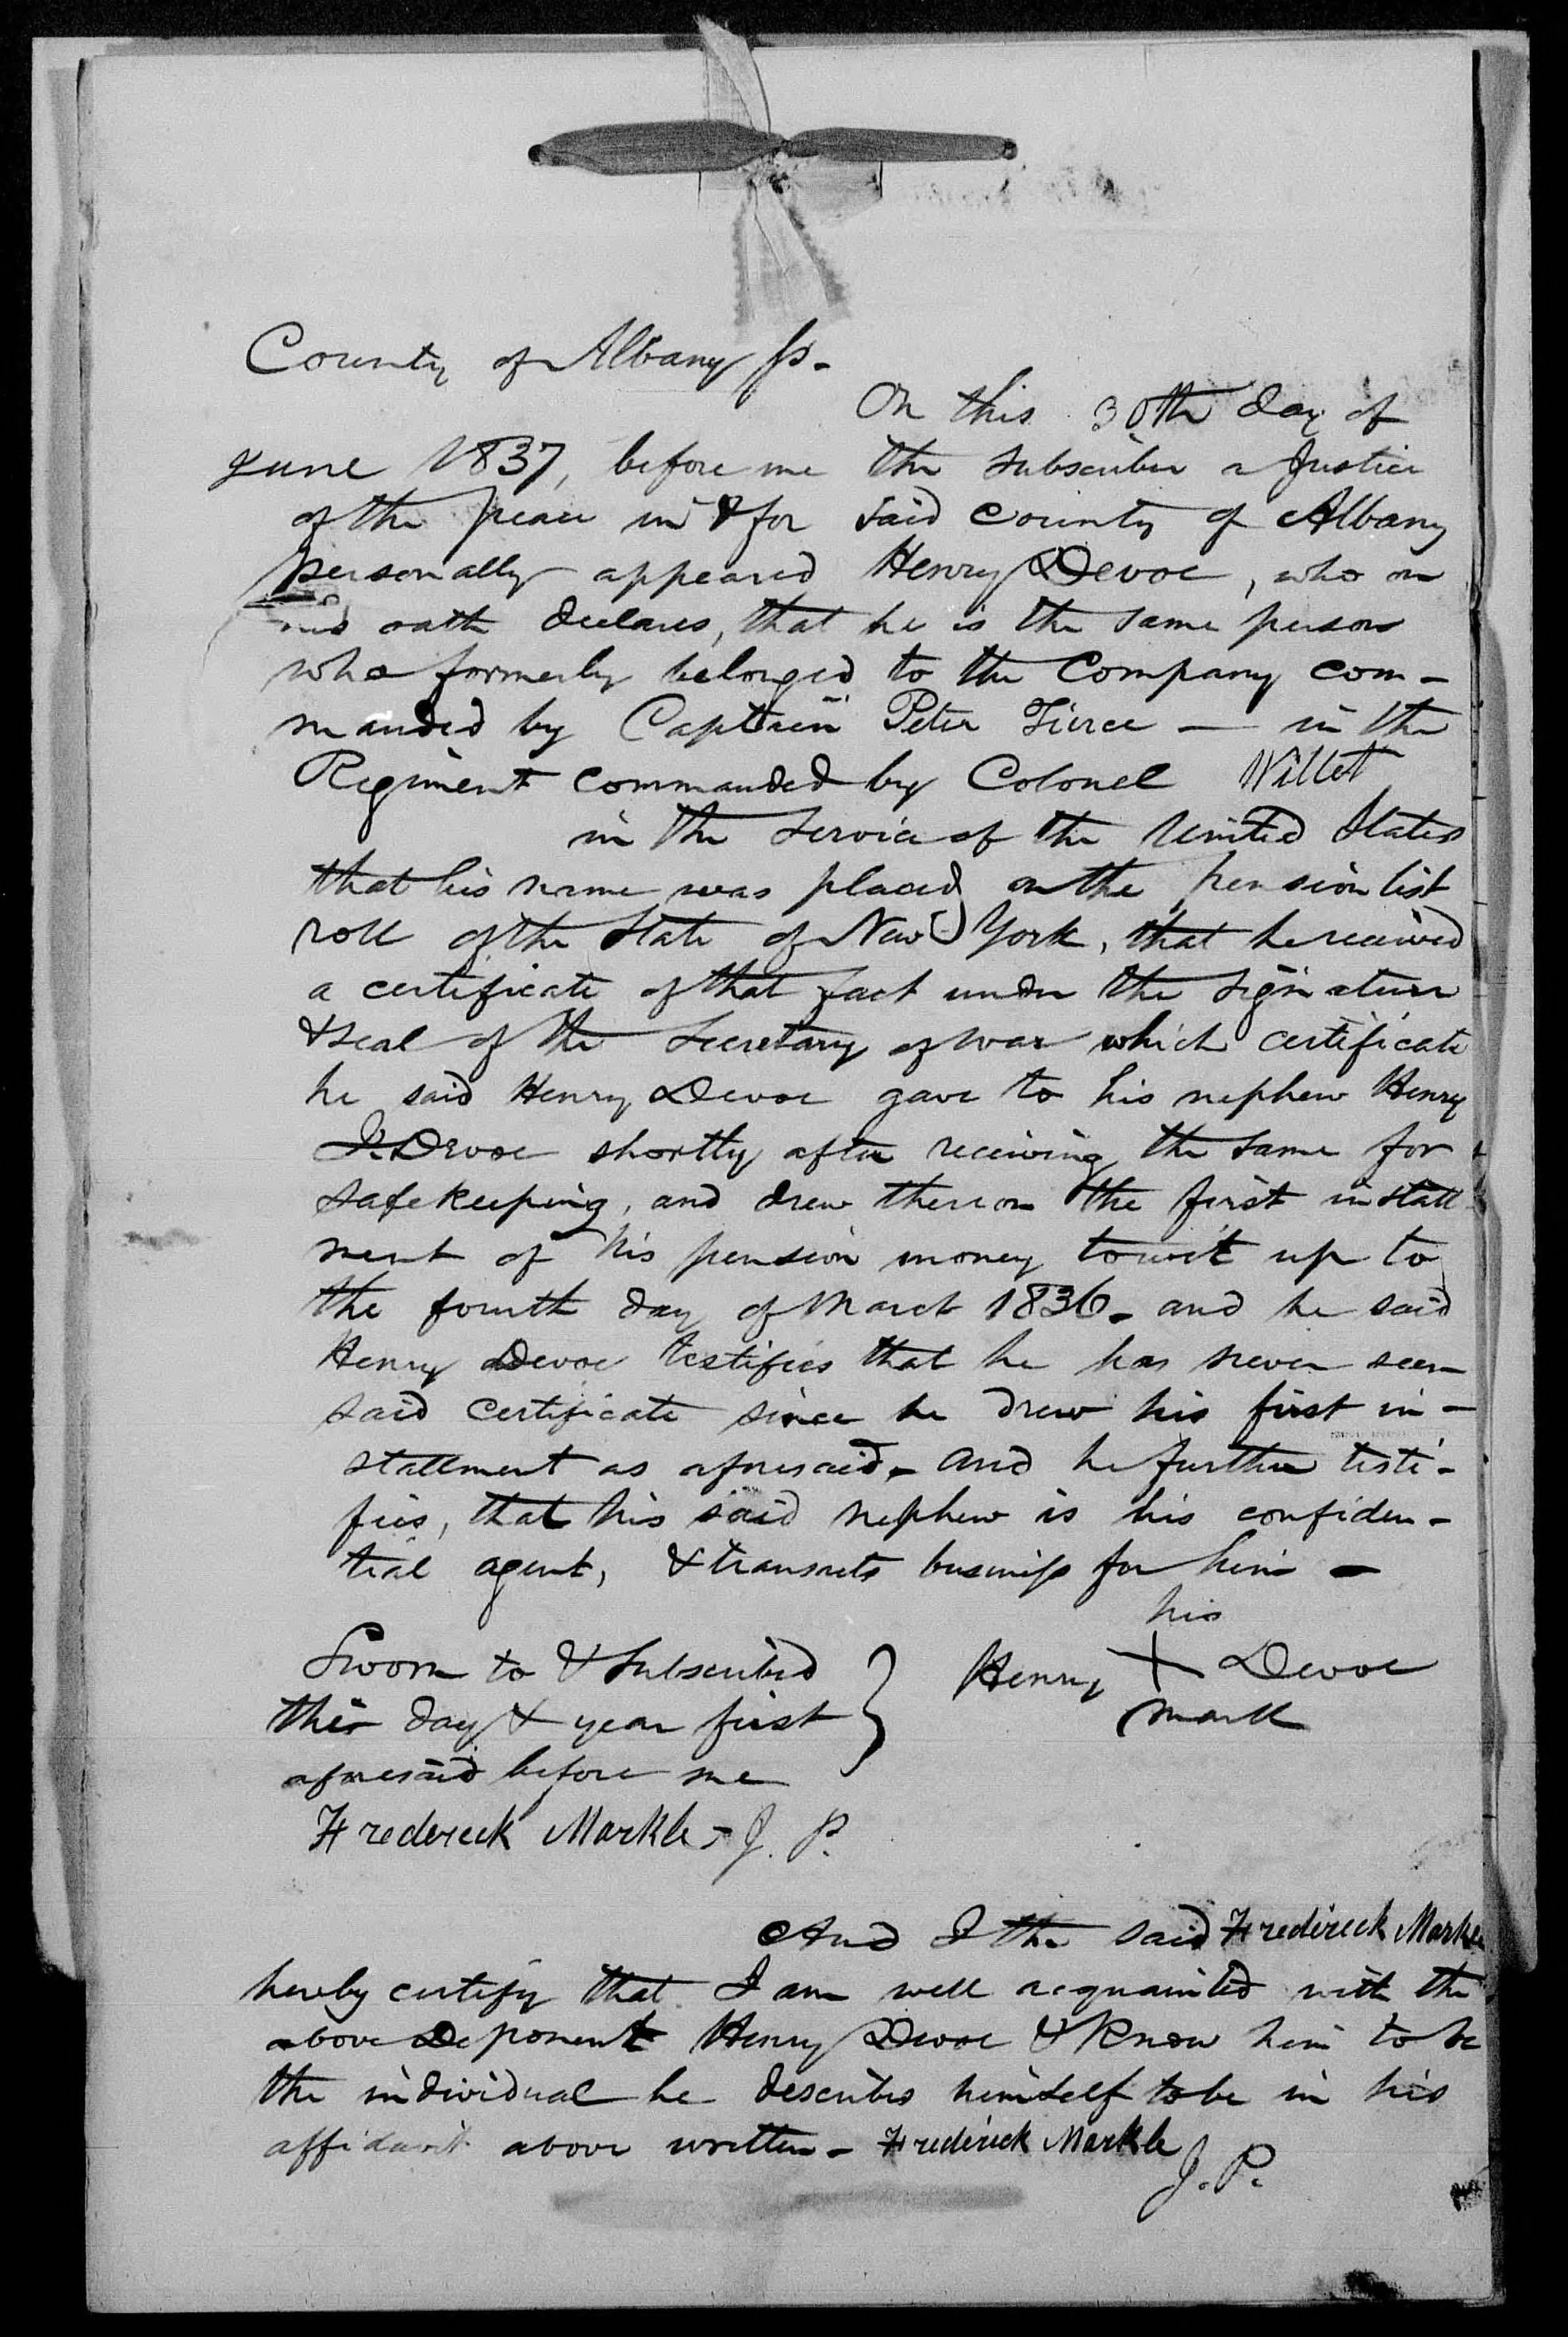 County of Albany ss.
On this 30th day of
June 1837, before me the subscriber a Justice
of the peace in & for said County of Albany
personally appeared Henry Devoe, who on
his oath declares, that he is the same person
who formerly belonged to the Company com-
manded by Captain Peter Tierce — in the
Regiment commanded by Colonel Willet
in the service of the United States
that his name was placed on the pension list
roll of the State of New York, that he received
a certificate of that fact under the signature
& seal of the Secretary of war which certificate
he said Henry Devoe gave to his nephew Henry
I. Devoe shortly after receiving the same for
safe keeping, and drew thereon the first install
ment of his pension money towit up to
the fourth day of March 1836. and he said
Henry Devoe testifies that he has never seen
said certificate since he drew his first in-
stallment as aforesaid. and he further testi-
fies, that his said nephew is his confiden-
tial agent, & transacts business for him -
his
Sworn to & Subscribed } Henry X Devoe
this day & year first mark
aforesaid before me
Fredereck Markle - J. P.
And I the said Fredereck Markle
hereby certify that I am well acquainted with the
above Deponent Henry Devoe & Know him to be
the individual he describes himself to be in his
affidavit above written - Frederick Markle
J. P.